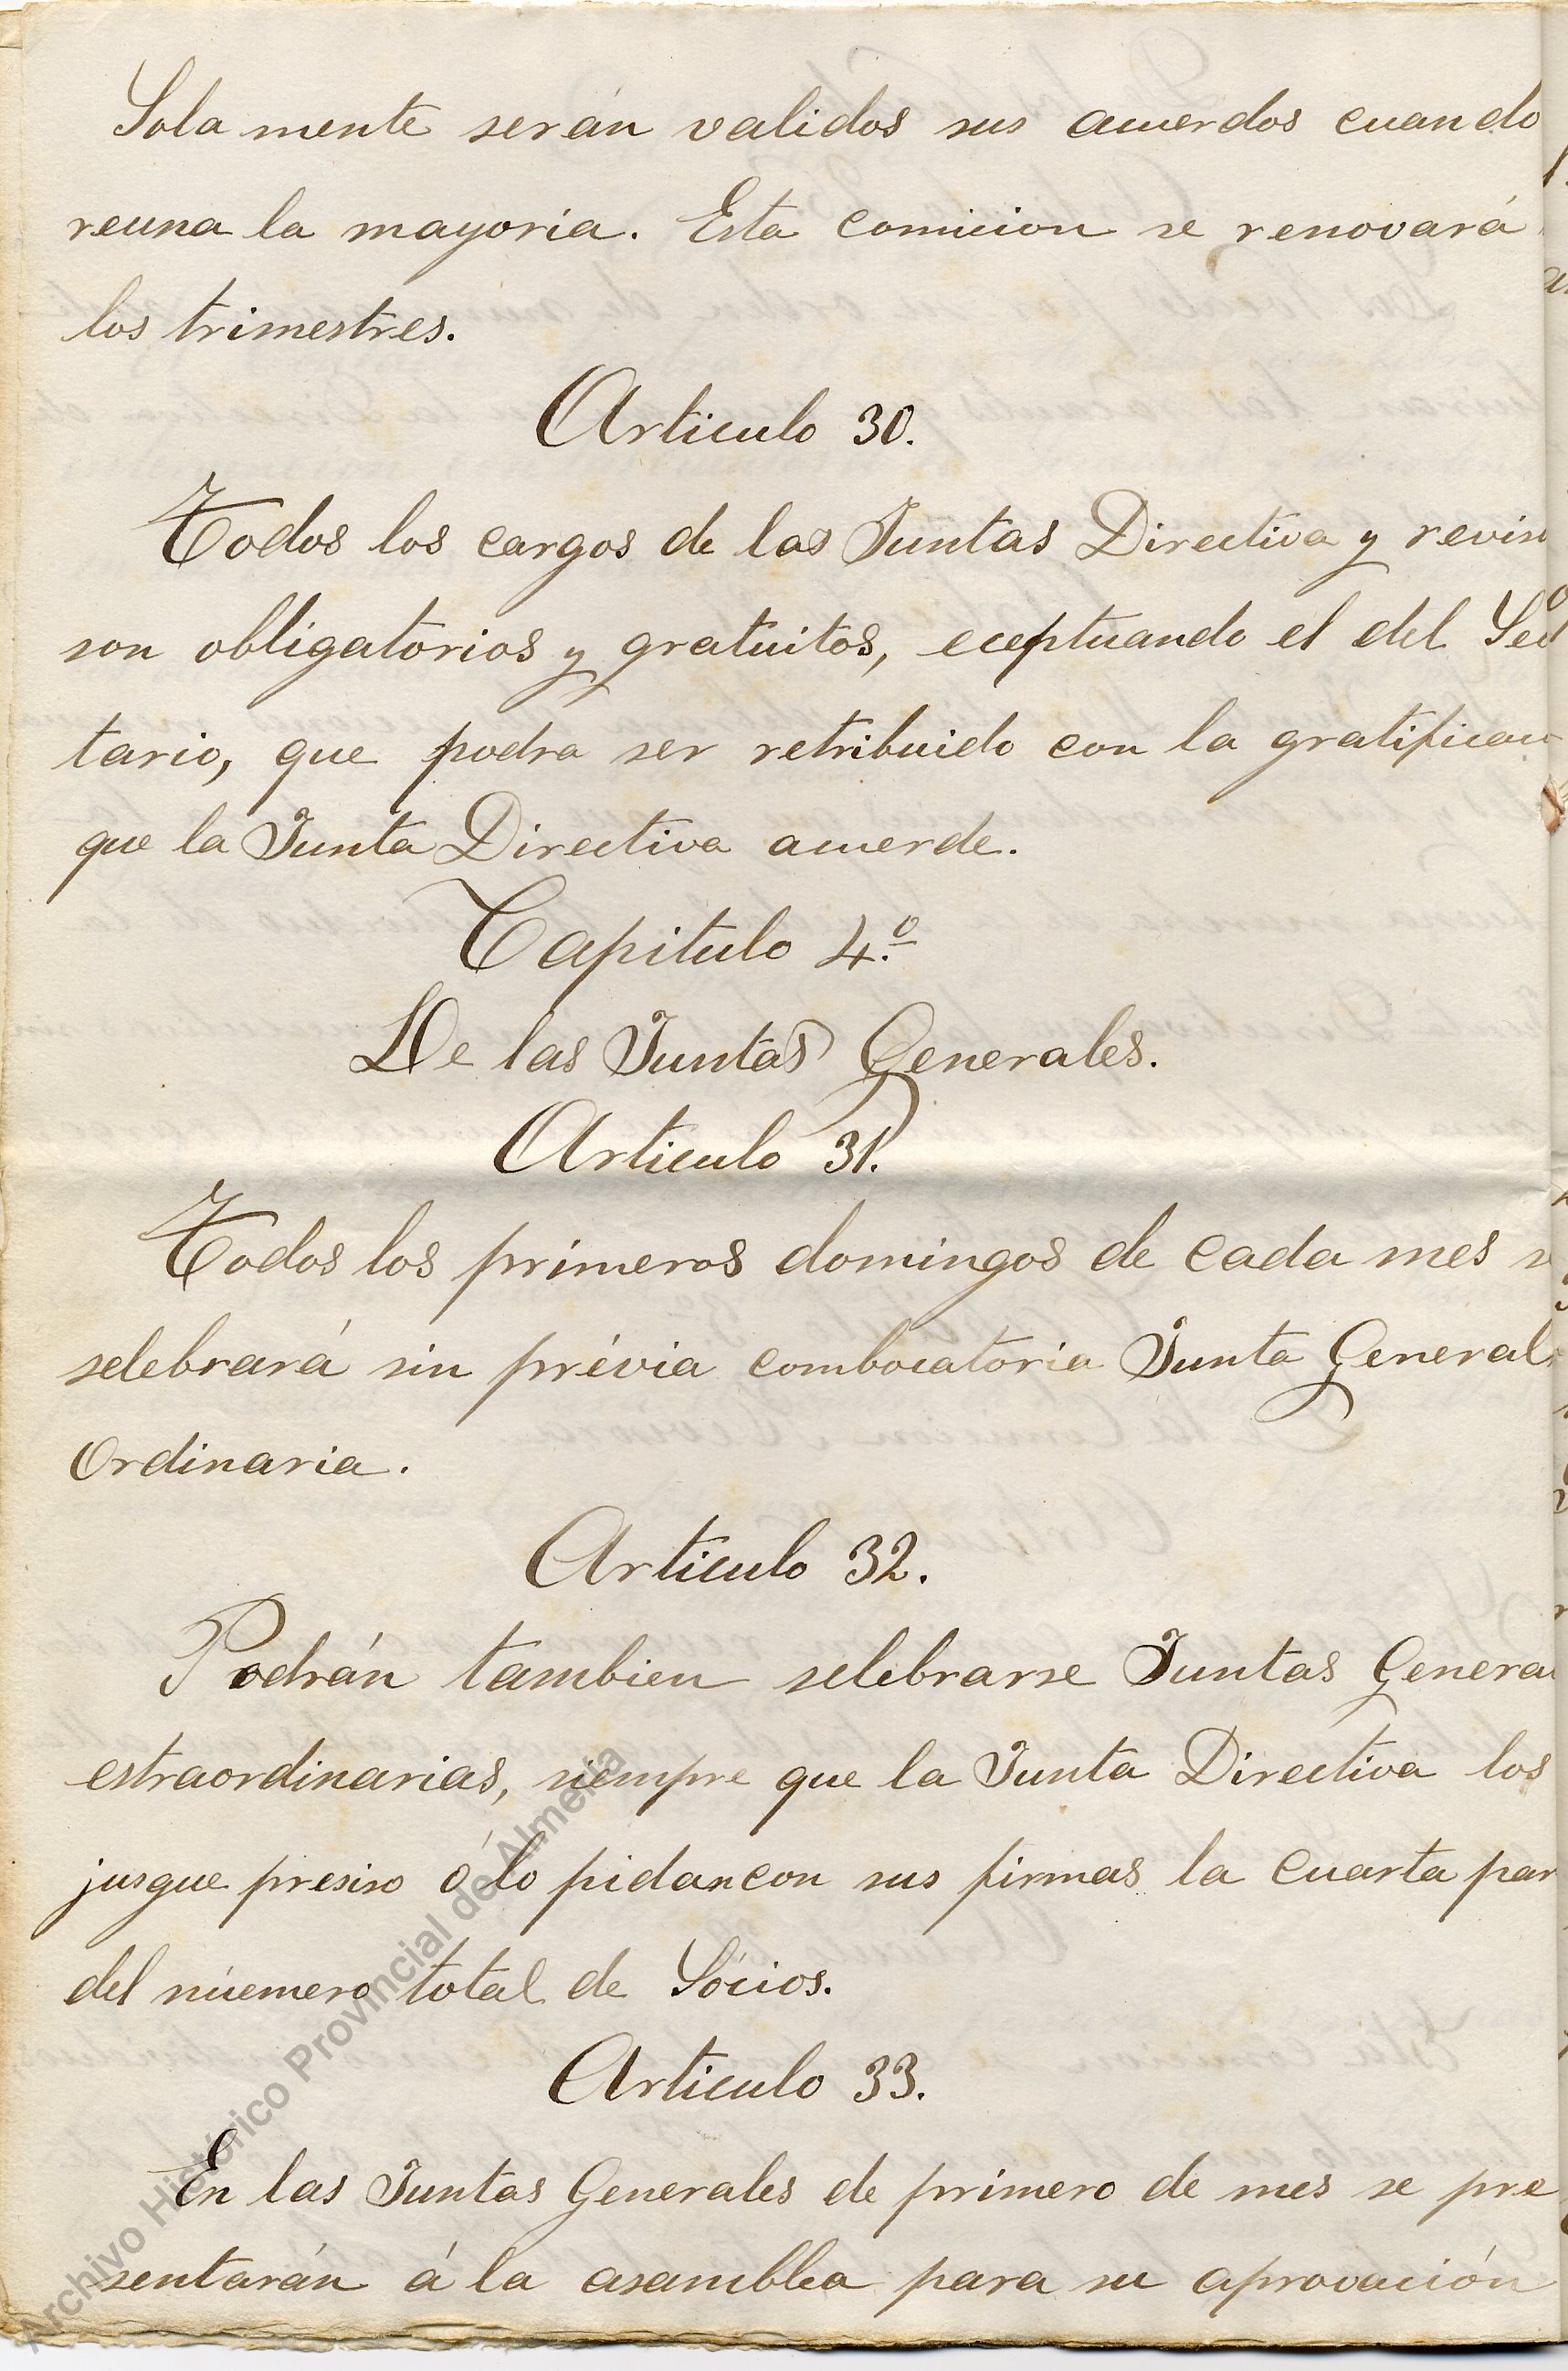 Sola mente serán validos sus acuerdos cuando
reuna la mayoria. Esta comicion se renovará
los trimestres.
Articulo 30.
Todos los cargos de las Juntas Directiva y revis
son obligatorios y gratuitos, eceptuando el del Sec
tario, que podra ser retribuido con la gratificac
que la Junta Directiva acuerde.
Capitulo 4.º
De las Juntas Generales.
Articulo 31.
Todos los primeros domingos de cada mes s
selebrará sin prévia combocatoria Junta General
Ordinaria.
Articulo 32.
Podrán tambien selebrarse Juntas Genera
estraordinarias, siempre que la Junta Directiva los
jusgue presiso ó lo pidan con sus firmas la cuarta par
del núemero total de Sócios.
Articulo 33.
En las Juntas Generales de primero de mes se pre
sentarán á la asamblea para su aprovación
Archivo Histórico Provincial de Almería